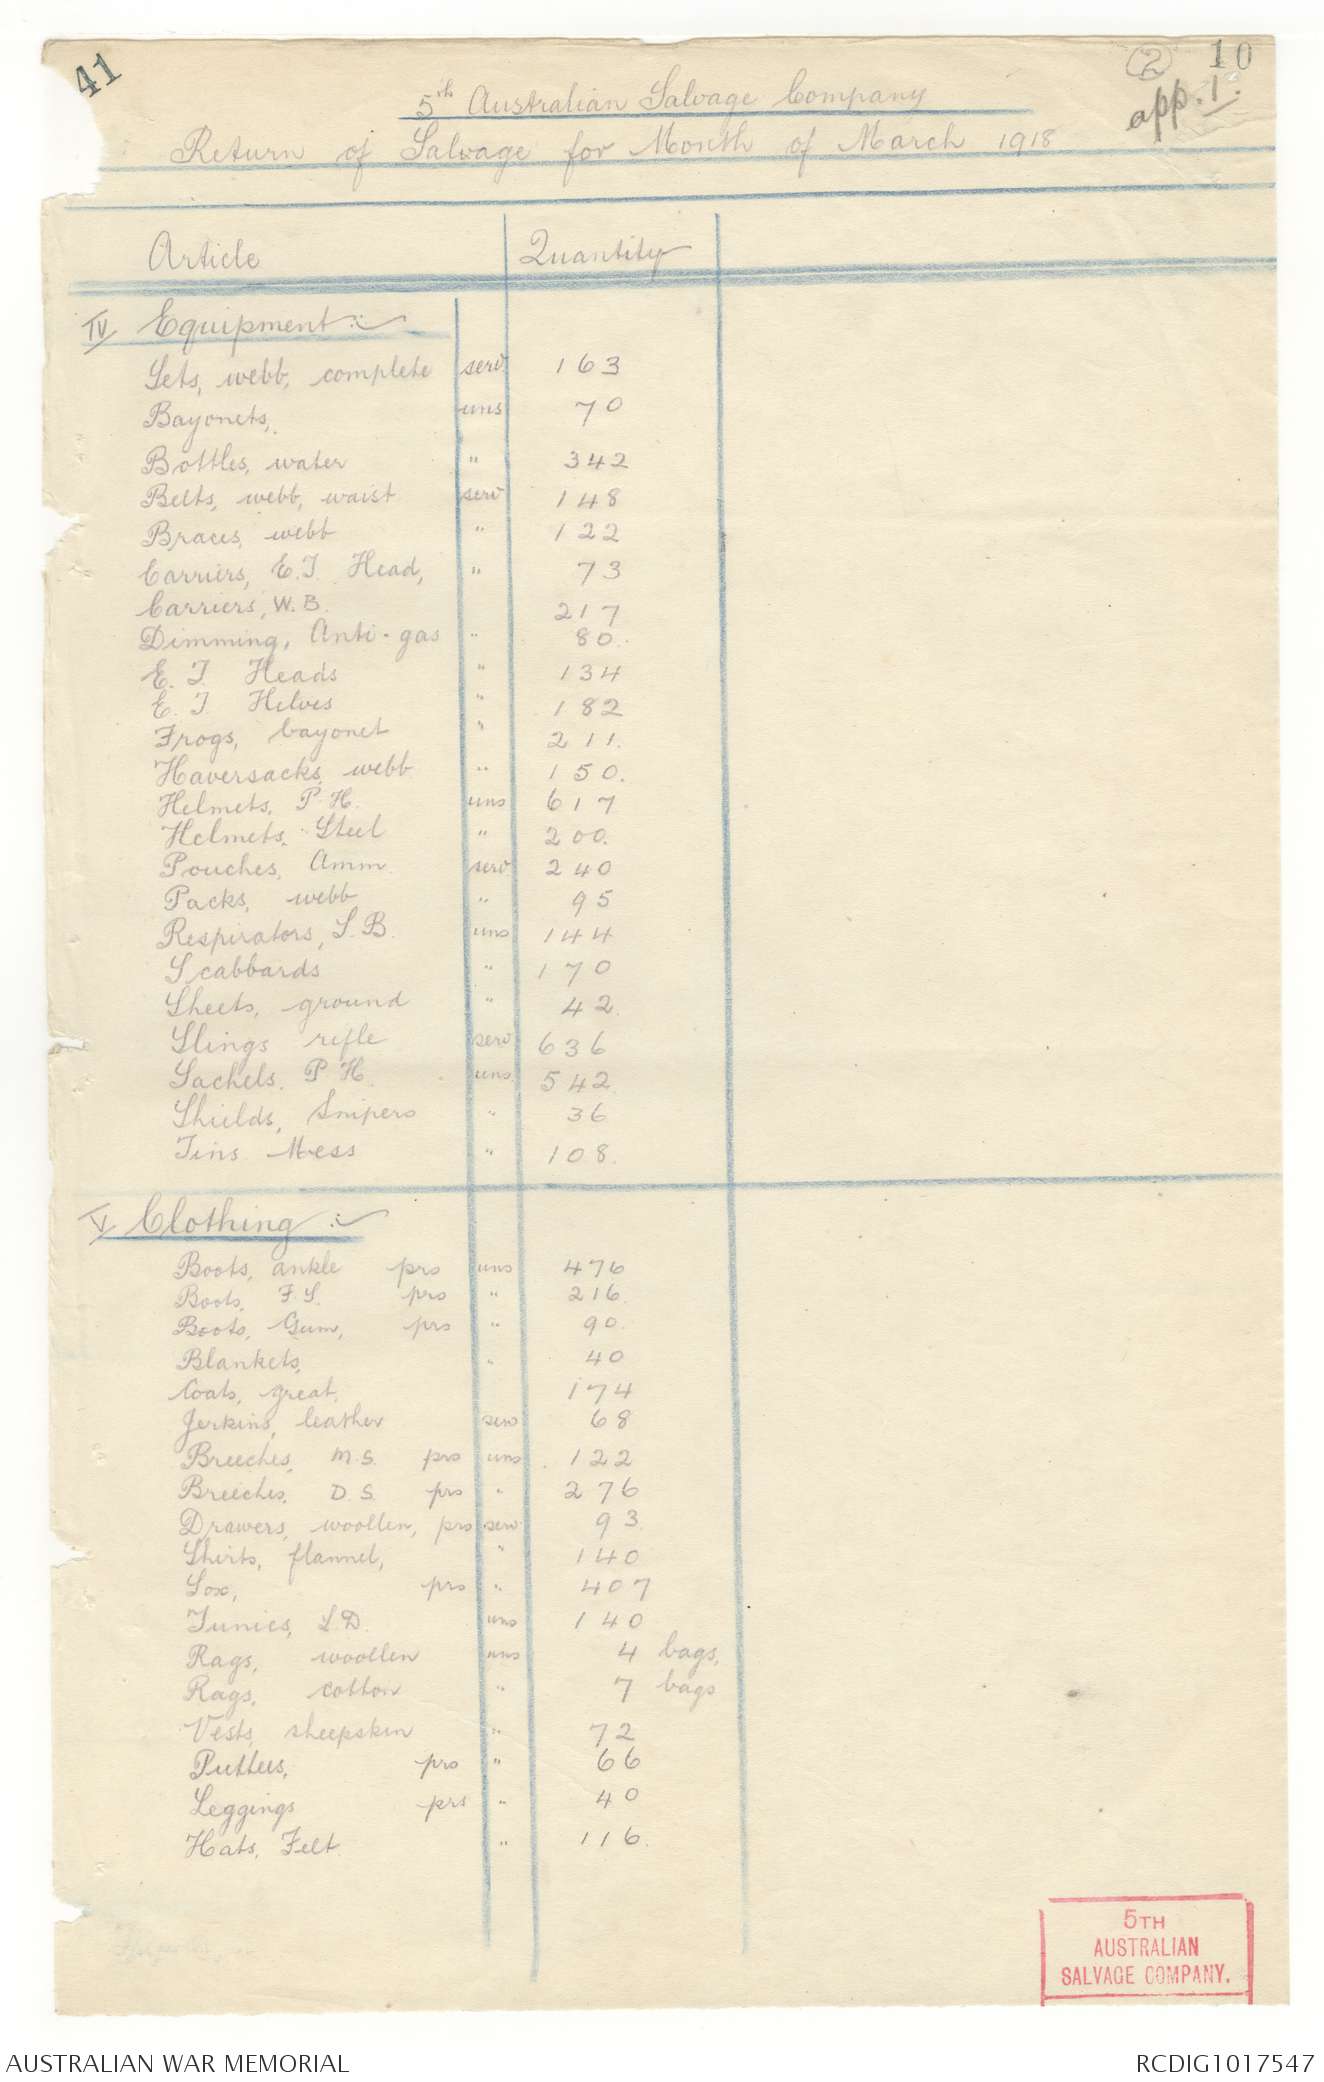 41
(2) 10
app. 1.
5th Australian Salvage Company
Return of Salvage for Month of March 1918
Article Quantity
IV Equipment :-
Sets, webb, complete serv 163
Bayonets, uns 70
Bottles, water " 342
Belts, webb, waist serv 148
Braces, webb " 122
Carriers, E.T. Head, " 73
Carriers, W.B. 217
Dimming, Anti-gas " 80.
E. T. Heads " 134
E. T. Helves " 182
Frogs, bayonet " 211.
Haversacks, webb " 150.
Helmets, P.H. uns 617
Helmets, Steel " 200.
Pouches, Amm. serv 240
Packs, webb " 95
Respirators, S.B. uns 144
Scabbards " 170
Sheets, ground " 42.
Slings rifle serv 636
Sachels. P.H. uns. 542
Shields, Snipers " 36
Tins Mess " 108.
V Clothing :-
Boots, ankle prs uns 476
Boots, F.S. prs " 216.
Boots, Gum, prs " 90.
Blankets, " 40
Coats, great, 174
Jerkins, leather serv 68
Breeches, M.S. prs uns 122
Breeches, D.S. prs " 276
Drawers, woollen, prs serv 93
Shirts, flannel, " 140
Sox, prs " 407
Tunics, S.D. uns 140
Rags, woollen uns 4 bags,
Rags, cotton " 7 bags
Vests, sheepskin " 72
Puttees, prs " 66
Leggings prs " 40
Hats, Felt. " 116.
5TH
AUSTRALIAN
SALVAGE COMPANY.
AUSTRALIAN WAR MEMORIAL RCDIG1017547